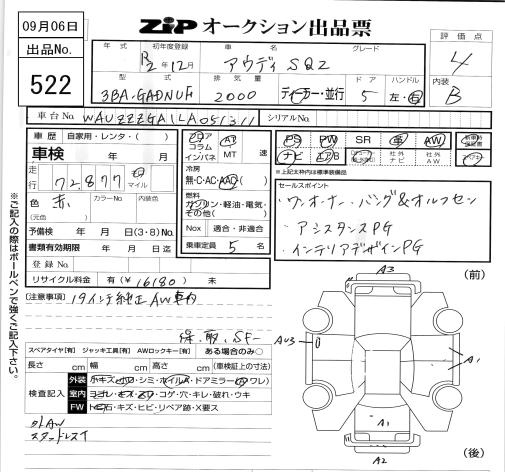 09月06日
ZIP オークション出品票
出品No.
522
年式 初年度登録 車名 グレード
R2年12月 アウディ SQ2
型式 排気量 ドア ハンドル
3BA-GADNUF 2000 ディーラー・並行 5 左・右
評価点
4
内装
B
車台No. WAUZZZGA1LA051311 シリアルNo.
車歴 自家用・レンタ・( )
車検 年 月 日
走行 72,877 km マイル
色 赤 カラーNo. 内装色
(元色)
予備検 年 月 日(3・8)No.
書類有効期限 年 月 日
登録No.
リサイクル料金 有(¥16180) 未
フロア コラム インパネ AT MT 速
冷房
無・C・AC・AAC・( )
燃料
ガソリン・軽油・電気・その他( )
Nox 適合・非適合
乗車定員 5 名
PS PW SR 革 AW
ナビ エアB 社外ナビ 社外AW
※上記枠内は標準装備品
セールスポイント
・ワンオーナー・バング&オルフセン
・アシスタンスPG
・インテリアデザインPG
[注意事項] 19インチ純正AW
保、取、SF-
スペアタイヤ[有] ジャッキ工具[有] AWロックキー[有] ある場合のみ○
長さ cm 幅 cm 高さ cm (車検証上の寸法)
検査記入
外装 小キズ・・シミ・ホイルA・ドアミラー( ワレ)
室内 ヨゴレ・キズ・スレ・コゲ・穴・キレ・破れ・ウキ
FW トビ石・キズ・ヒビ・リペア跡・X要ス
外AW
スタッドレス
(前)
A3
A1
A1
A2
(後)
※ご記入の際はボールペンで強くご記入下さい。